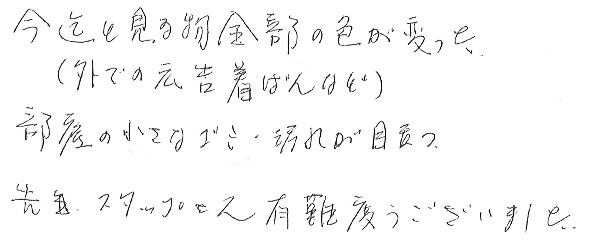 今迄と見る物全部の色が変った。
(外での広告着ばんなど)
部屋の小さなゴミ・汚れが目立つ
先生、スタッフさん有難度うございました。